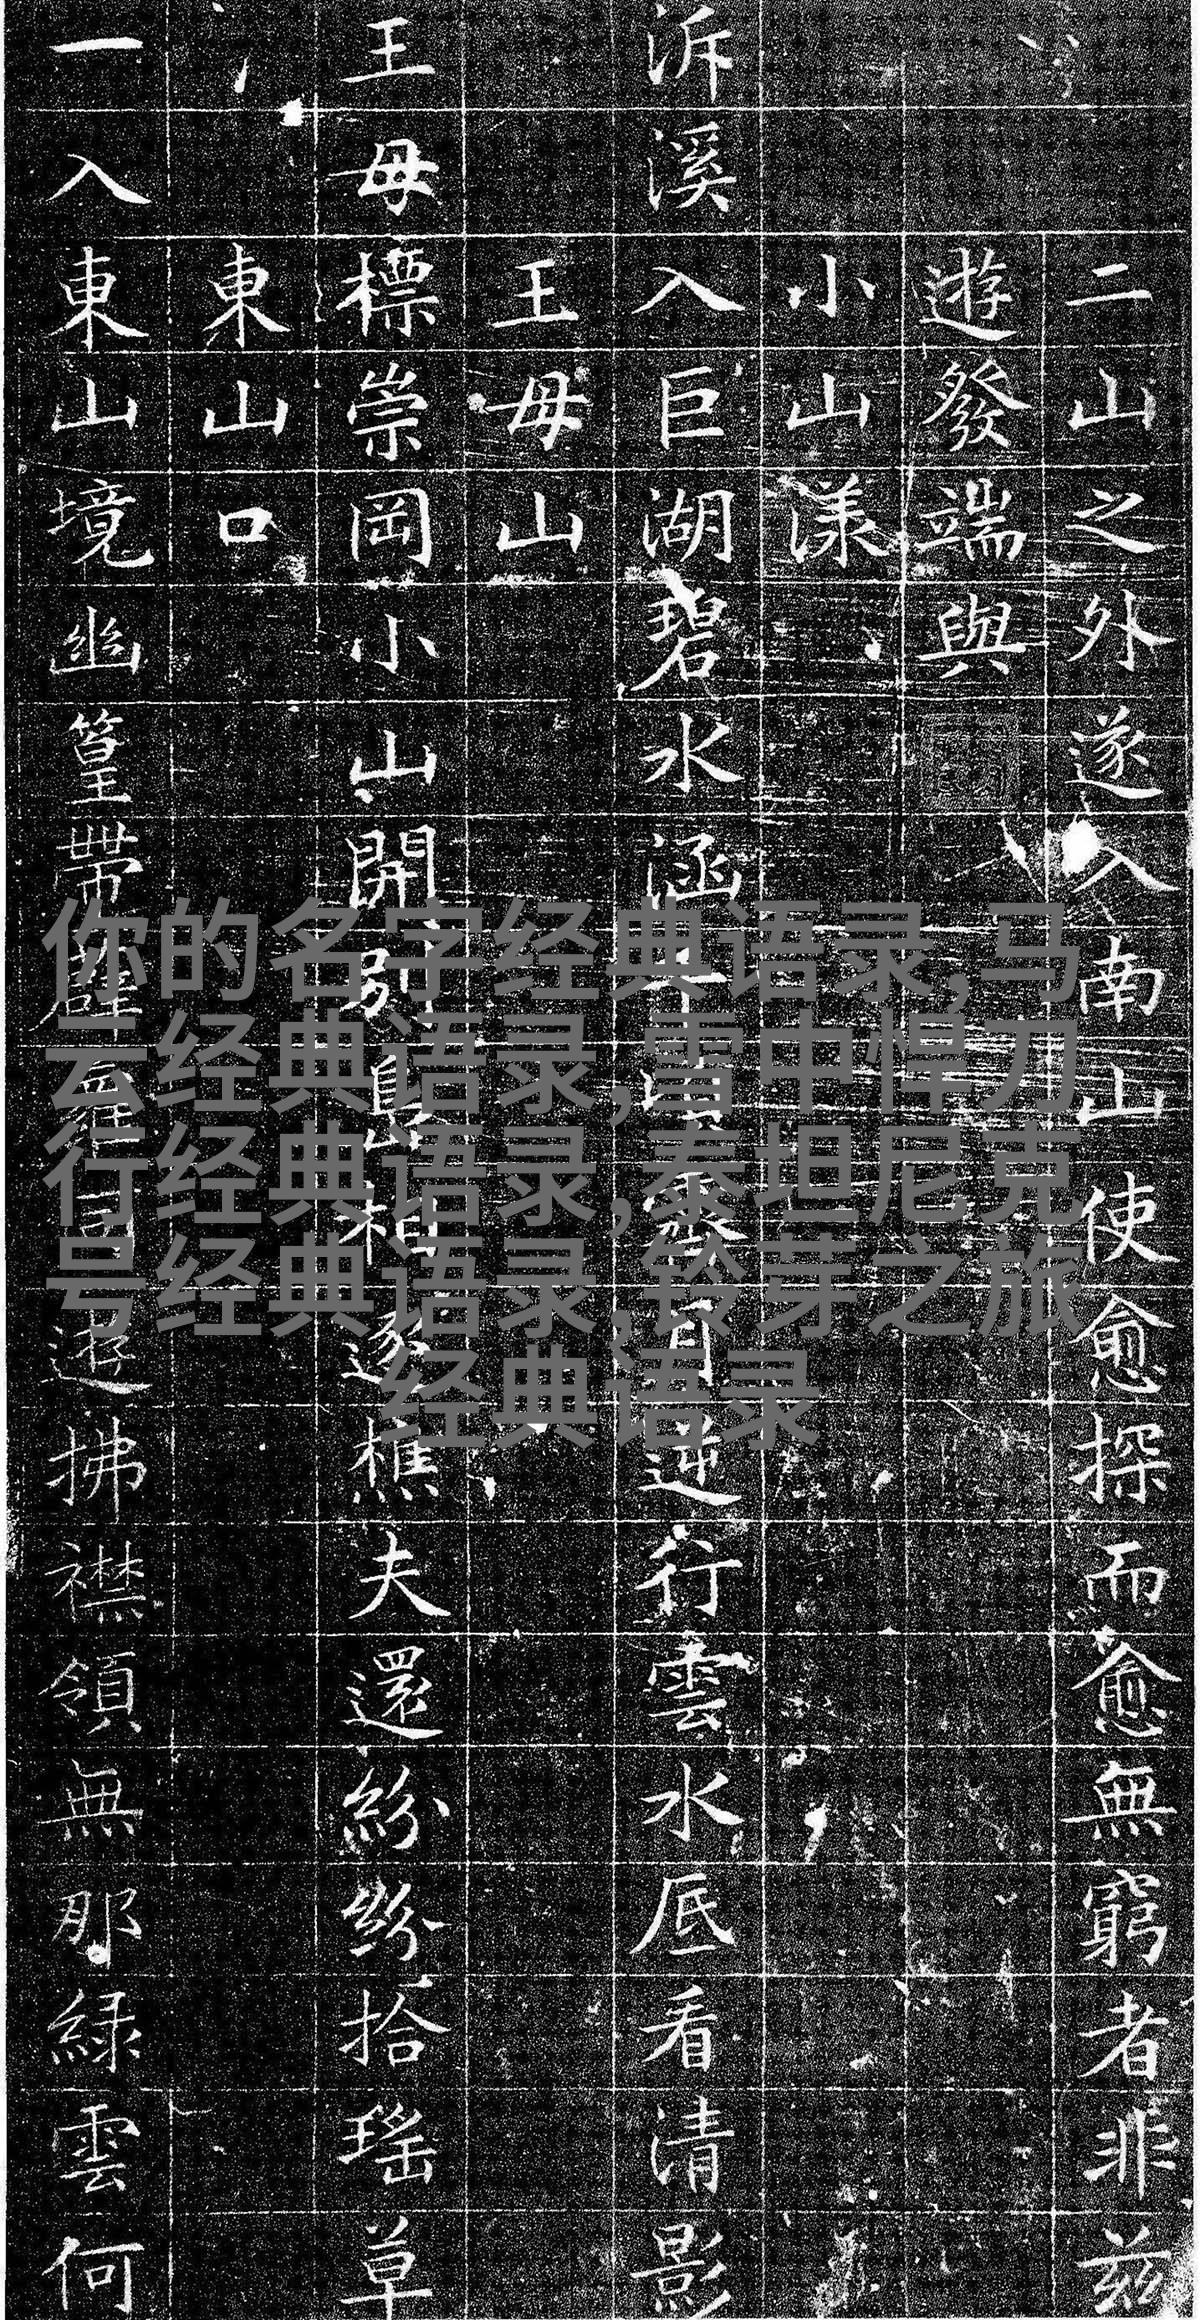 二山之外遂入南山使愈探而愈無窮者非兹
遊發端與
小山漾
泝溪入巨湖碧水涵逆行雲水底看清影
王母山
王母標崇岡小山開別島相逐樵夫還紛紛拾瑤草
東山口
一入東山境幽篁帶薜蘿拂襟領無那綠雲何
你的名字经典语录,马
云经典语录,雪中悍刀
行经典语录,泰坦尼克
号经典语录,铃芽之旅
经典语录